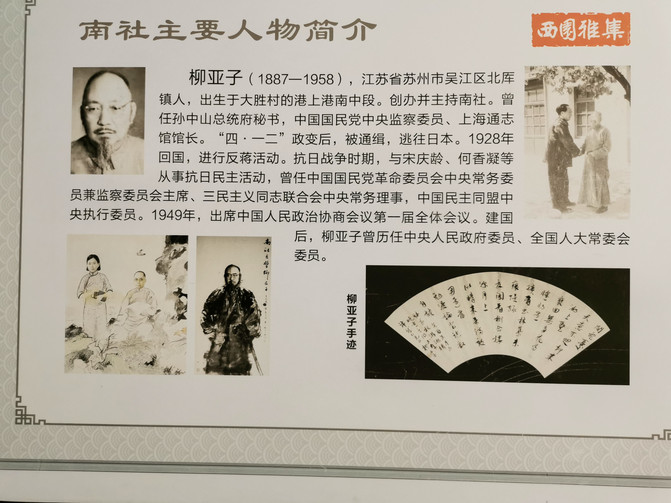 南社主要人物简介
西園雅集
柳亚子（1887—1958），江苏省苏州市吴江区北厍
镇人，出生于大胜村的港上港南中段。创办并主持南社。曾
任孙中山总统府秘书，中国国民党中央监察委员、上海通志
馆馆长。“四·一二”政变后，被通缉，逃往日本。1928年
回国，进行反蒋活动。抗日战争时期，与宋庆龄、何香凝等
从事抗日民主活动，曾任中国国民党革命委员会中央常务委
员兼监察委员会主席、三民主义同志联合会中央常务理事，中国民主同盟中
央执行委员。1949年，出席中国人民政治协商会议第一届全体会议。建国
后，柳亚子曾历任中央人民政府委员、全国人大常委会
委员。
柳亚子手迹